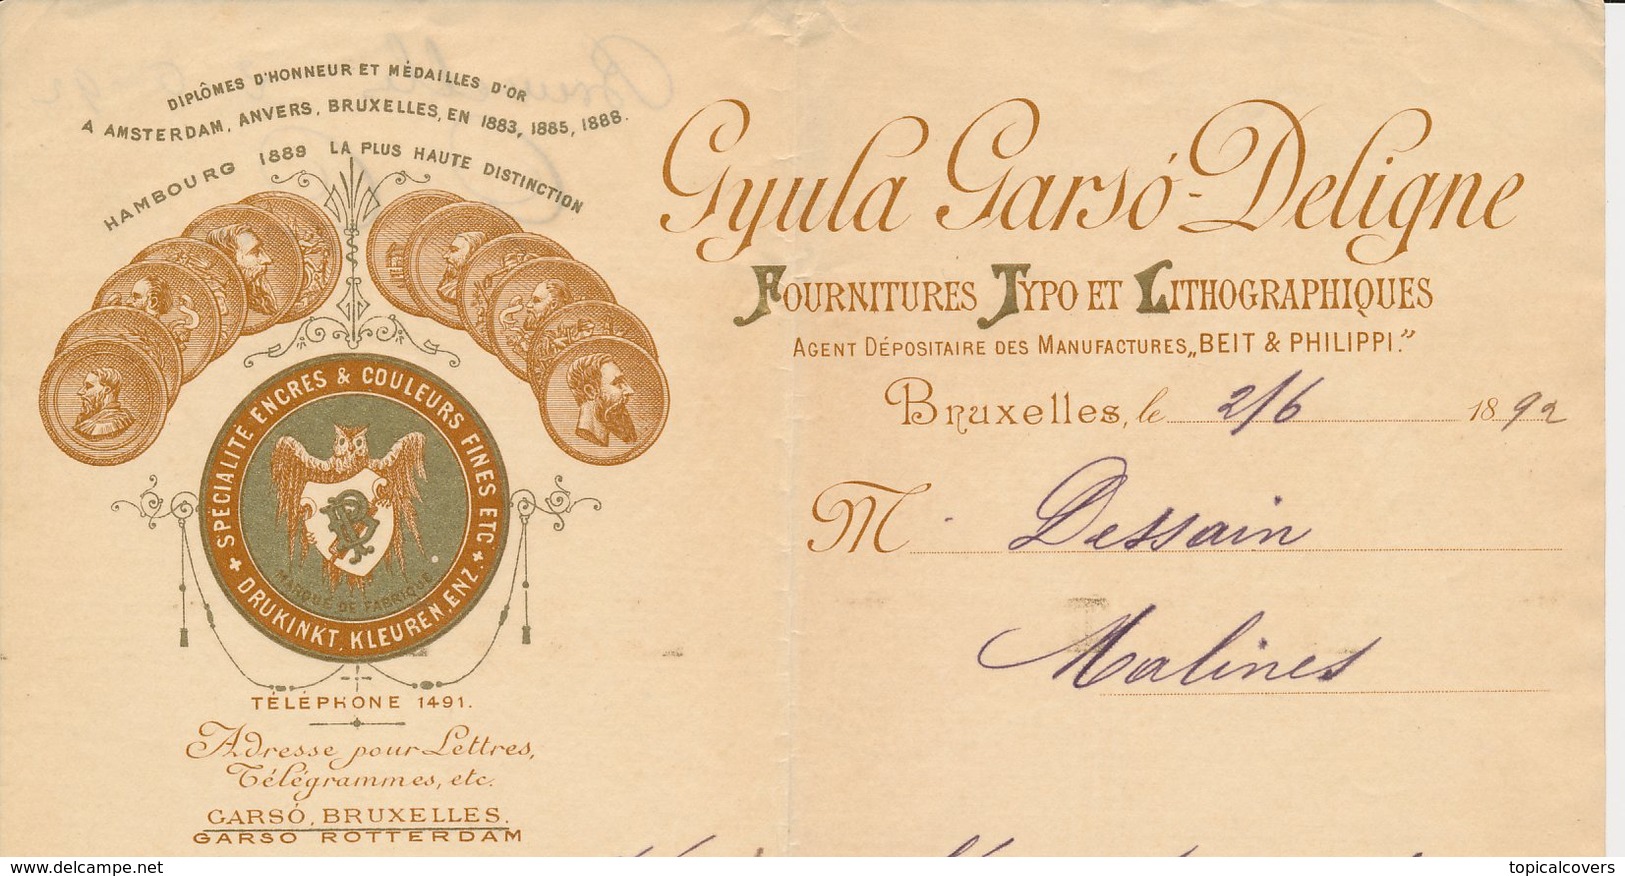 DIPLÔMES D'HONNEUR ET MÉDAILLES D'OR
A AMSTERDAM, ANVERS, BRUXELLES, EN 1883, 1885, 1888.
HAMBOURG 1889 LA PLUS HAUTE DISTINCTION
SPÉCIALITÉ ENCRES & COULEURS FINES ETC
DRUKINKT, KLEUREN, ENZ.
MARQUE DE FABRIQUE
TÉLÉPHONE 1491.
Adresse pour Lettres,
Télégrammes, etc.
GARSÓ, BRUXELLES.
GARSO ROTTERDAM
Gyula Garsó-Deligne
FOURNITURES TYPO ET LITHOGRAPHIQUES
AGENT DÉPOSITAIRE DES MANUFACTURES „BEIT & PHILIPPI.”
Bruxelles, le 2/6 1892
M. Dessain
Malines
topicalcovers